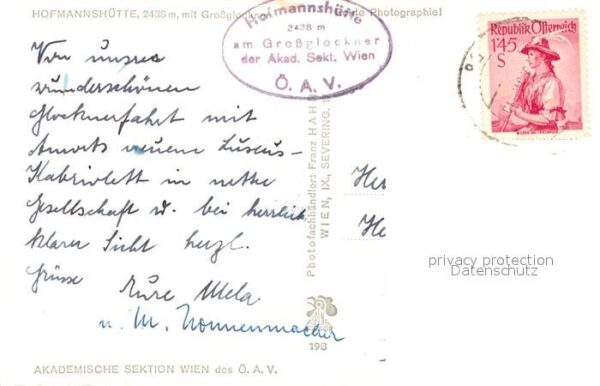 HOFMANNSHÜTTE, 2438 m, mit Großglockner
te Photographie!
Hofmannshütte
2438 m
am Großglockner
der Akad. Sekt. Wien
Ö. A. V.
Republik Österreich
1.45
S
Von unsrer
wunderschönen
Glocknerfahrt mit
neuem Luxus-
Kabriolett in netter
Gesellschaft u. bei herrlich
klarer Sicht herzl.
Grüsse
Eure Mela
u. M. Nonnenmacher
Photofachhändler: Franz HAHN
WIEN, IX., SEVERING.
Her
He
privacy protection
Datenschutz
198
AKADEMISCHE SEKTION WIEN des Ö. A. V.